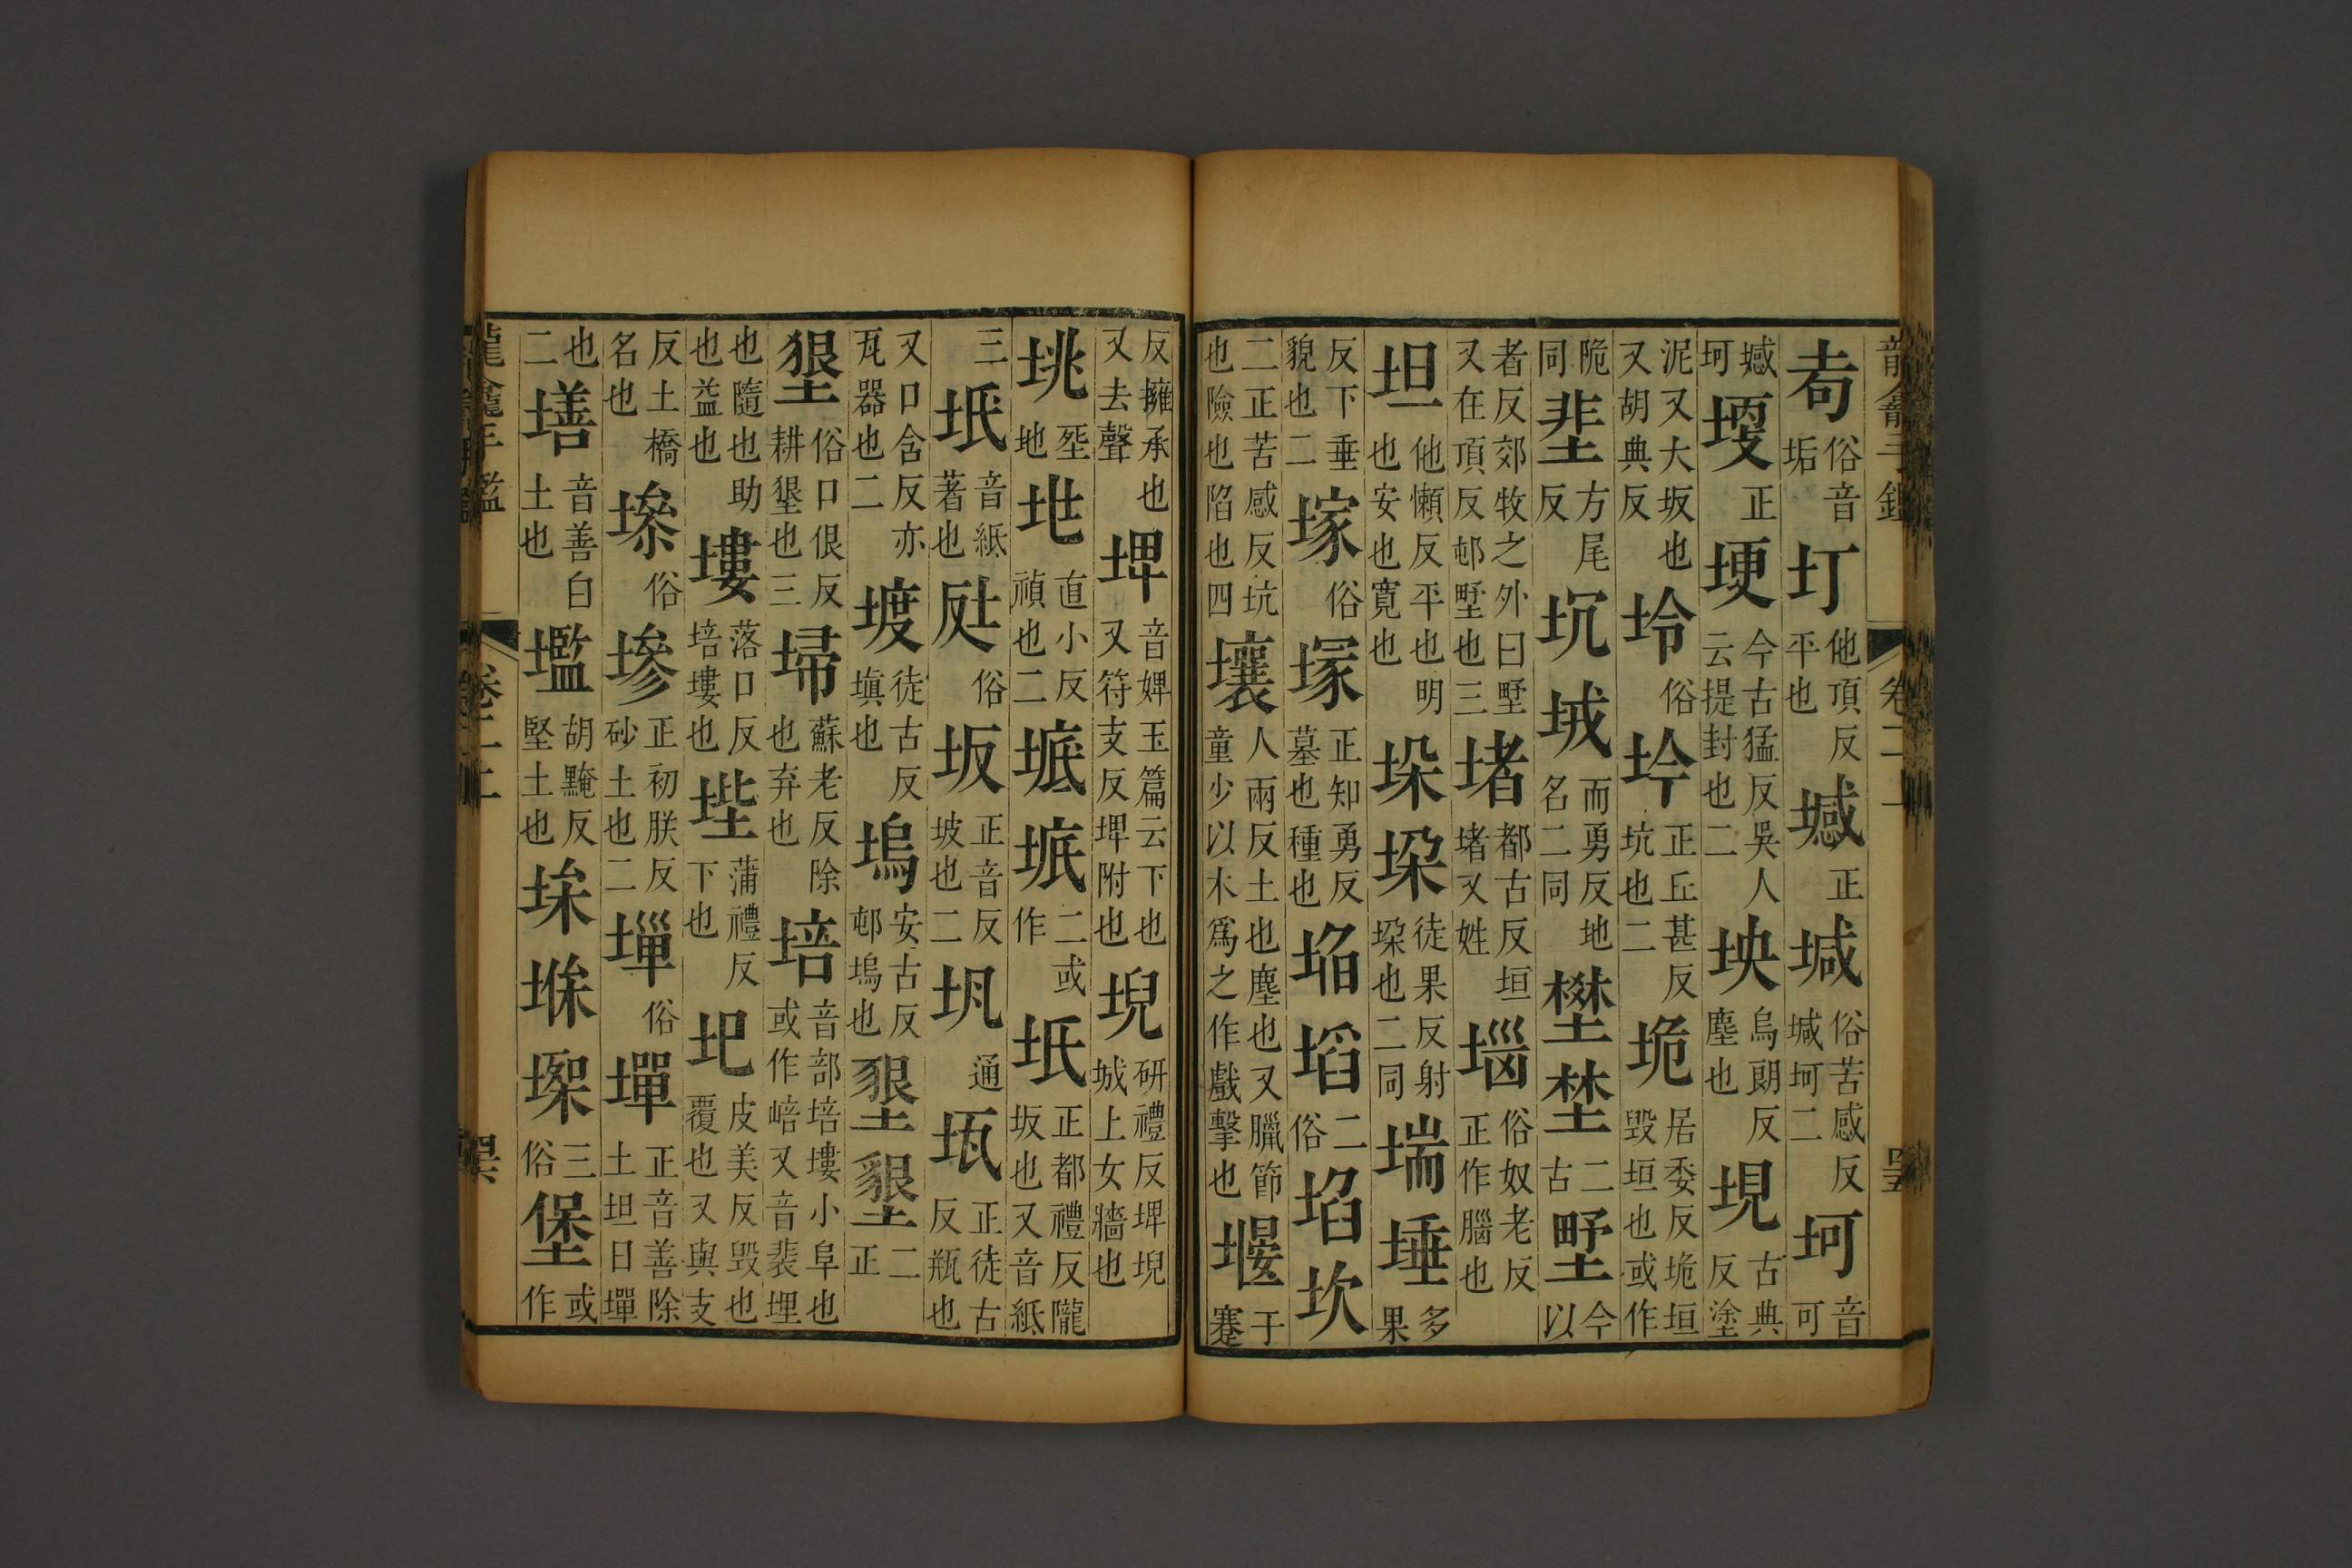 耇俗音垢圢他頂反平也㙳正堿俗苦感反堿坷二坷音可
㙳坷㙬正埂今古猛反吳人云提封也二坱烏朗反塵也垷古典反塗
泥又大坂也又胡典反坽俗坅正丘甚反坑也二垝居委反垝垣毀垣也或作
陒同㘩方尾反坈𡊸而勇反地名二同埜二古野今以
者反郊牧之外曰墅又在頂反邨墅也三堵都古反垣堵又姓堖俗奴老反正作腦也
坦他懶反平也明也安也寬也垜垛徒果反射垜也二同𡎺埵多果
反下垂貌也二塚俗塜正知勇反墓也種也埳塪二俗埳坎
二正苦感反坑也險也陷也四壤人兩反土也塵也又臘節童少以木爲之作戲擊也堰于蹇
反擁承也又去聲埤音婢玉篇云下也又符支反埤附也堄研禮反埤堄城上女牆也
垗垗地垗直小反禎也二㡳坻二或作坻正都禮反隴坂也又音紙
三坁音紙著也㘱俗坂正音反坡也二坈通瓳正徒古反瓶也
又口含反亦瓦器也二𡍨徒古反塡也塢安古反邨塢也墾墾二正
墾俗口佷反耕墾也三埽蘇老反除也弃也培音部培塿小阜也或作㟝又音裴埋
也隨也助也益也塿落口反培塿也㙄蒲禮反下也圯皮美反毀也覆也又與支
反土橋名也墋俗墋正初朕反砂土也二墠俗墠正音善除土坦曰墠
也二墡音善白土也壏胡黤反堅土也堢堢堢三俗堡或作
龍龕手鑑 卷二 土